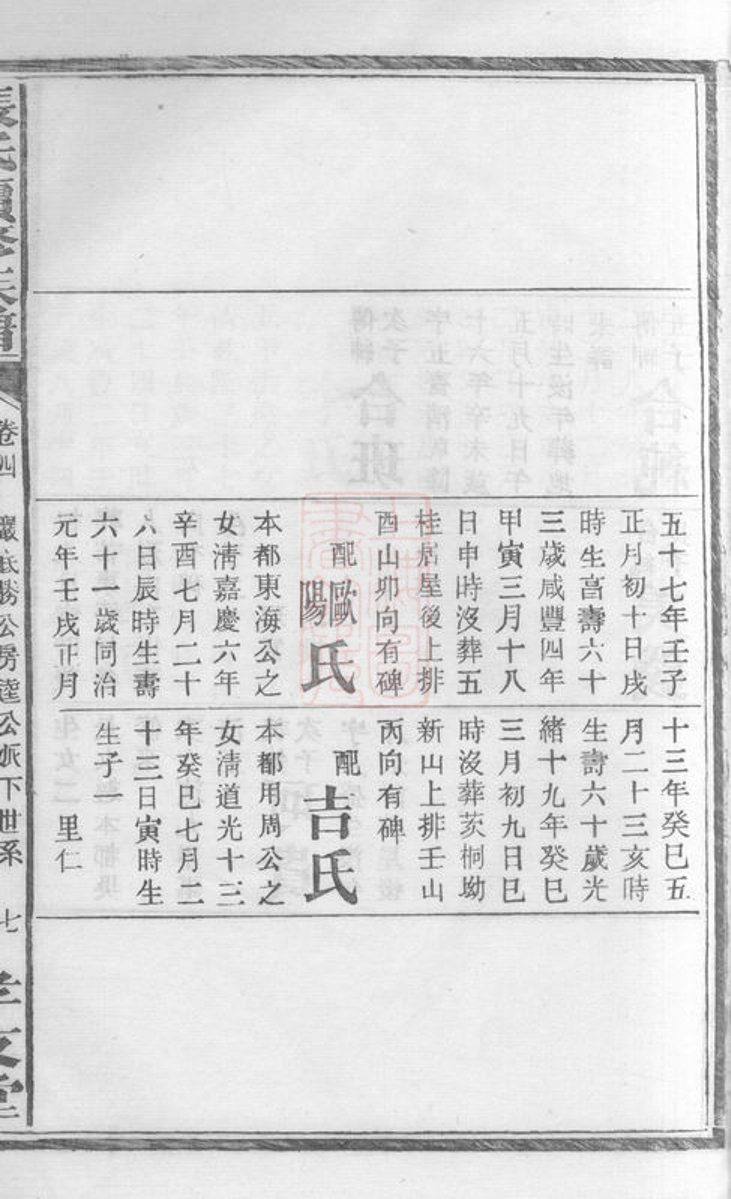 五十七年壬子
正月初十日戌
時生亯壽六十
三歲咸豐四年
甲寅三月十八
日申時沒葬五
桂居屋後上排
酉山卯向有碑
配歐陽氏
本都東海公之
女淸嘉慶六年
辛酉七月二十
八日辰時生壽
六十一歲同治
元年壬戌正月
十三年癸巳五
月二十三亥時
生壽六十歲光
緒十九年癸巳
三月初九日巳
時沒葬茨桐坳
新山上排壬山
丙向有碑
配吉氏
本都用周公之
女淸道光十三
年癸巳七月二
十三日寅時生
生子 里仁
張氏續修族譜
卷四
嚴底勝公房達公派下世系
七
孝友堂